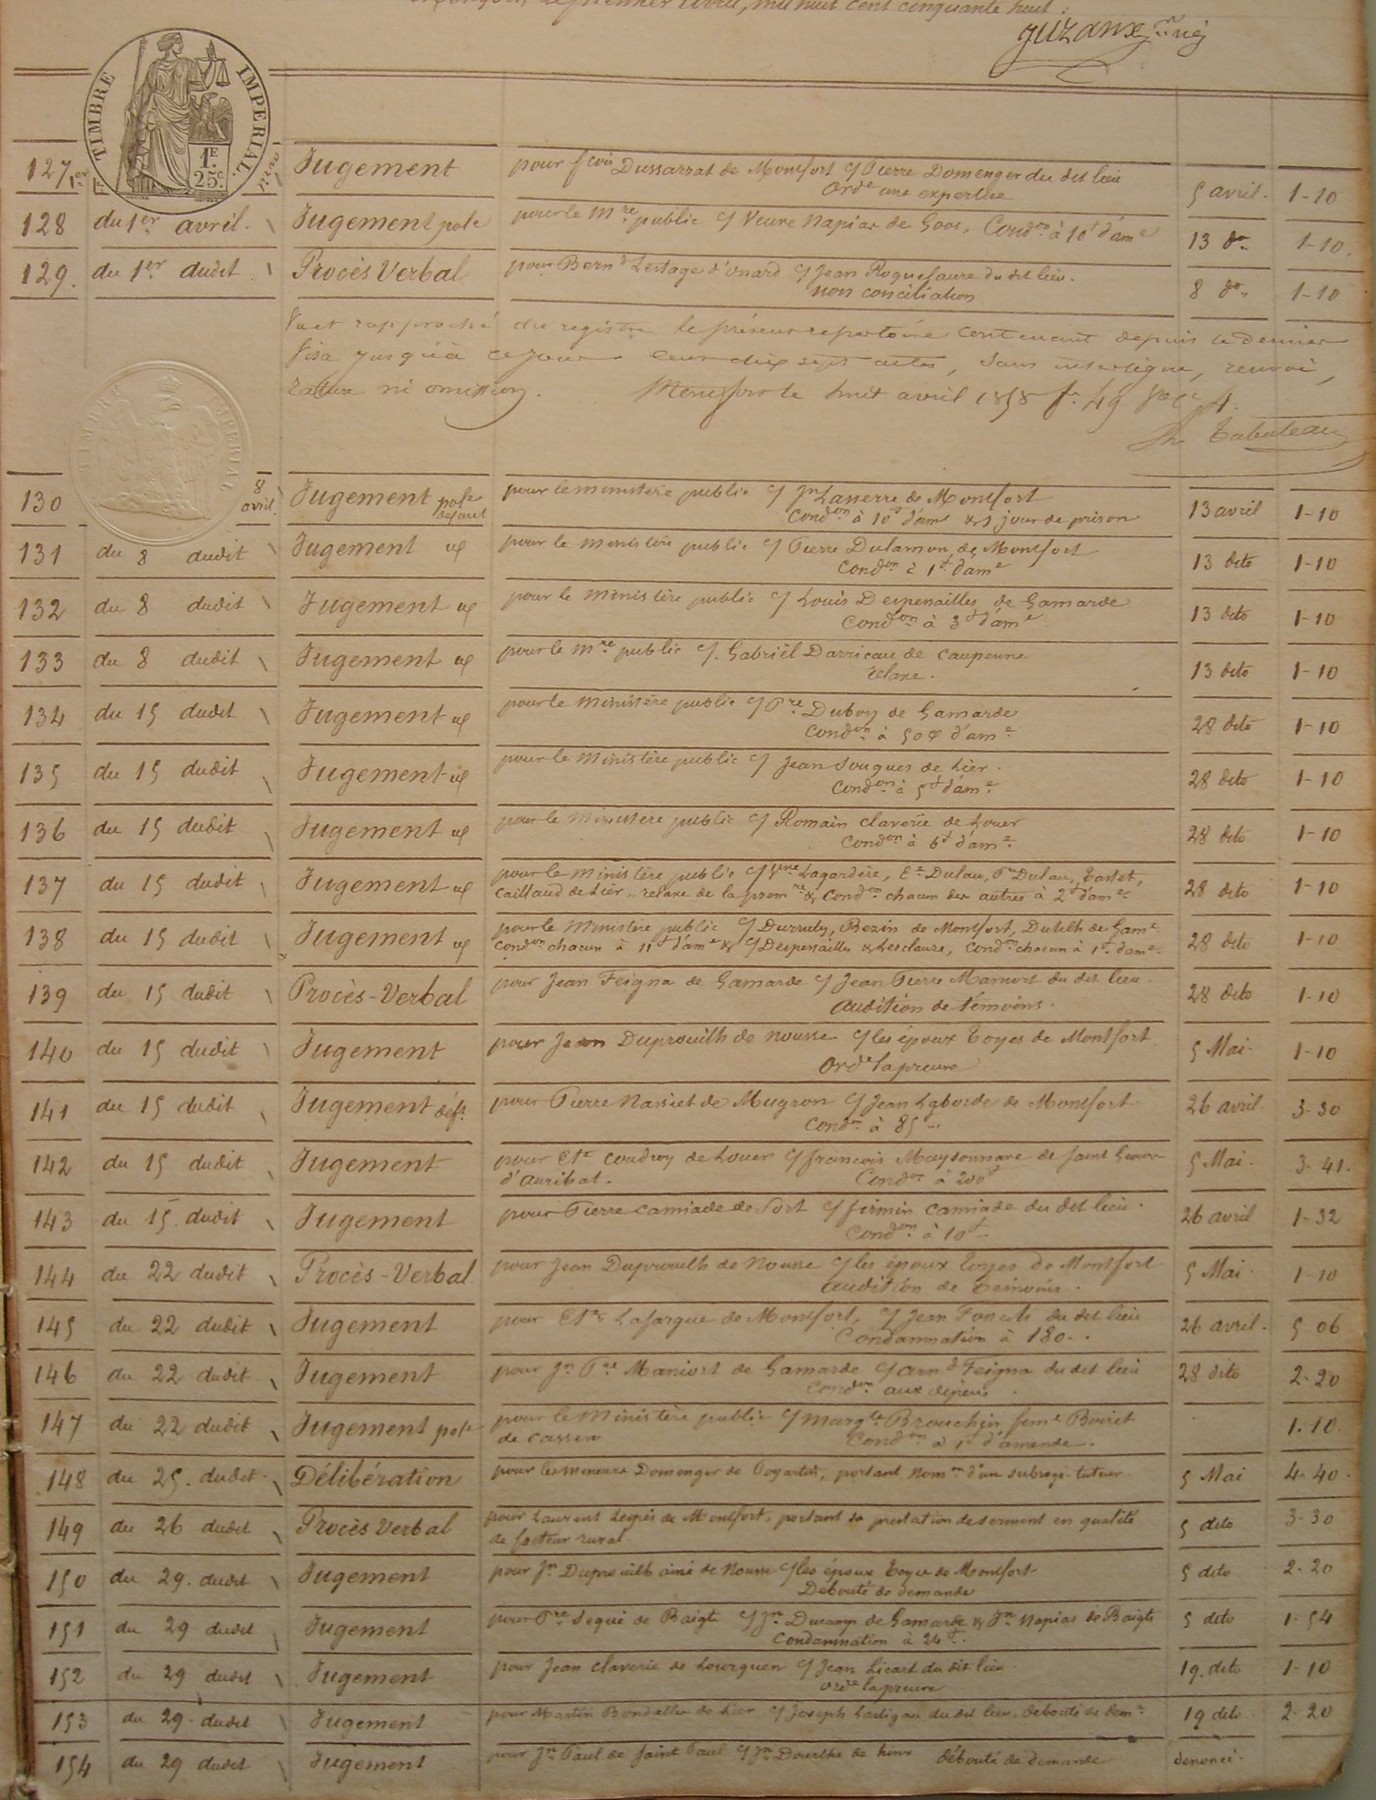 mil huit cent cinquante huit :
TIMBRE IMPERIAL
1F 25c
127 1er avril Jugement pour fcois Dussarrat de Montfort c/ Pierre Domenger du dit lieu 5 avril. 1-10
Orde une expertise
128 du 1er avril. Jugement pole pour le mre public c/ Veuve Napias de Goos, Condon à 10f d'ame 13 do 1-10.
129. du 1er dudit Procès Verbal pour Bernd Lestage d'onard c/ Jean Roquefaure du dit lieu. 8 do 1-10
non conciliation
Vu et rapproché du registre le présent repertoire contenant depuis le dernier
Visa jusqu'à ce jour cent dix sept actes, sans interligne, renvoi,
rature ni omission. Montfort le huit avril 1858 fo 49
TIMBRE IMPERIAL
130 8 avril Jugement pole defaut pour le ministère public c/ Jn Lasserre de Montfort 13 avril 1-10
Condon à 10f d'ame & 1 jour de prison
131 du 8 dudit Jugement pour le Ministère public c/ Pierre Dulamon, de Montfort 13 dito 1-10
Condon à 1f d'ame
132 du 8 dudit Jugement pour le Ministère public c/ Louis Despenailles de Gamarde 13 dito 1-10
Condon à 3f d'ame
133 du 8 dudit Jugement pour le mre public c/. Gabriël Darricau de Caupenne 13 dito 1-10
relaxe.
134 du 15 dudit Jugement pour le Ministère public c/ Pre Duboy de Gamarde 28 dito 1-10
Condon à 50c d'ame
135 du 15 dudit Jugement pour le Ministère public c/ Jean Sougues de hier. 28 dito 1-10
Condon à 5f d'ame
136 du 15 dudit Jugement pour le Ministère public c/ Romain Claverie de Louer 28 dito 1-10
Condon à 6f d'ame
137 du 15 dudit Jugement pour le Ministère public c/ Lagardère, Dulau, Pre Dulau, 28 dito 1-10
Caillaud de hier relaxe de la premre & Condon chacun des autres à 2f d'ame
138 du 15 dudit Jugement pour le Ministère public c/ Bezin de Montfort, Dutilh de Game 28 dito 1-10
Condon chacun à 11f d'ame & c/ Despenailles & Lesclauze, Condon chacun à 1f d'ame
139 du 15 dudit Procès-Verbal pour Jean Feigna de Gamarde c/ Jean Pierre Maniort du dit lieu. 28 dito 1-10
Audition de témoins.
140 du 15 dudit Jugement pour Jean Duprouilh de nousse c/ les époux Toyes de Montfort 5 Mai. 1-10
Orde la preuve
141 du 15 dudit Jugement déft. pour Pierre Nassiet de Mugron c/ Jean Laborde de Montfort 26 avril. 3-30
Condon à 85f
142 du 15 dudit Jugement pour Coudroy de Louer c/ francois Maysonnave de Saint Geours 5 Mai. 3-41.
d'auribat. Condon à 200f
143 du 15. dudit Jugement pour Pierre Camiade de Sort c/ firmin Camiade du dit lieu. 26 avril 1-32
Condon à 10f
144 du 22 dudit Procès-Verbal pour Jean Duprouilh de Nousse c/ les époux Toyes de Montfort 5 Mai. 1-10
audition de témoins.
145 du 22 dudit Jugement pour Lafargue de Montfort, c/ Jean du dit lieu 26 avril. 5 06
Condamnation à 180.
146 du 22 dudit Jugement pour Jn Pre Maniort de Gamarde c/ arnd Feigna du dit lieu 28 dito 2-20
Condon aux dépens.
147 du 22 dudit Jugement pole pour le Ministère public c/ Margte Brouchin feme Boiret 1.10.
de Cassen Condon à 1f d'amende.
148 du 25. dudit. Délibération pour les mineurs Domenger de Poyartin, portant nomon d'un subrogé tuteur. 5 Mai 4-40.
149 du 26 dudit Procès Verbal pour Laurent de Montfort, portant sa prestation de serment en qualité 5 dito 3-30
de facteur rural.
150 du 29. dudit Jugement pour Jn Duprouilh ainé de Nousse c/ les époux Toyes de Montfort 5 dito 2-20
Débouté de demande
151 du 29 dudit Jugement pour Pre Segui de Baigts c/ Jn Ducamp de Gamarde & Jn Napias de Baigts 5 dito 1-54
Condamnation à 24f.
152 du 29 dudit Jugement pour Jean Claverie de Lourquen c/ Jean Licart du dit lieu 19. dito 1-10
Orde la preuve
153 du 29. dudit Jugement pour Martin de hier c/ Joseph Lartigau du dit lieu. debouté de deme 19 dito 2-20
154 du 29 dudit Jugement pour Jn Paul de Saint Paul c/ Jn Dourthe de hinx débouté de demande denoncé.